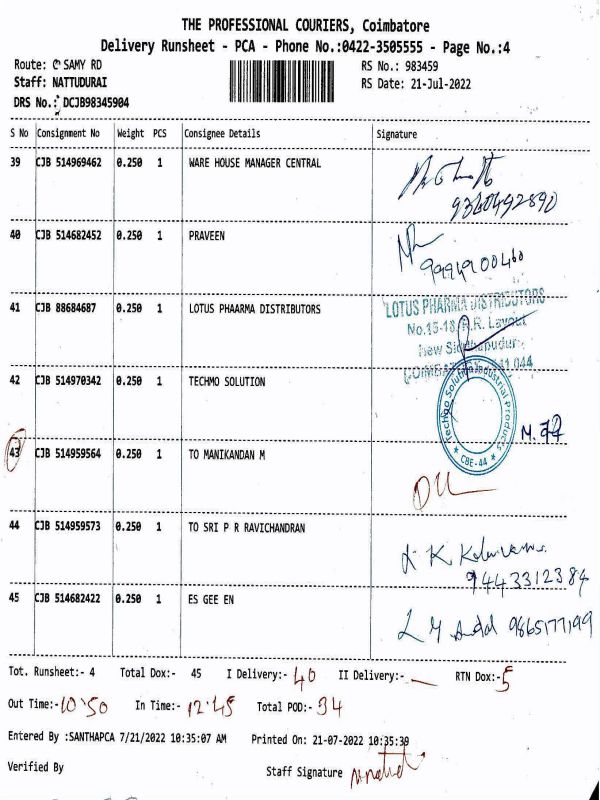 THE PROFESSIONAL COURIERS, Coimbatore
Delivery Runsheet - PCA - Phone No.:0422-3505555 - Page No.:4
Route: C SAMY RD
RS No.: 983459
Staff: NATTUDURAI
RS Date: 21-Jul-2022
DRS No.: DCJB98345904
S No Consignment No Weight PCS Consignee Details Signature
39 CJB 514969462 0.250 1 WARE HOUSE MANAGER CENTRAL
9360492890
40 CJB 514682452 0.250 1 PRAVEEN
9994900460
41 CJB 88684687 0.250 1 LOTUS PHAARMA DISTRIBUTORS
LOTUS PHARMA DISTRIBUTORS
No.15-18, R.R. Layout
New Siddhapudur
42 CJB 514970342 0.250 1 TECHMO SOLUTION
Techgo Solution Industrial Products
* CBE-44 *
43 CJB 514959564 0.250 1 TO MANIKANDAN M
44 CJB 514959573 0.250 1 TO SRI P R RAVICHANDRAN
9443312384
45 CJB 514682422 0.250 1 ES GEE EN
9865177199
Tot. Runsheet:- 4 Total Dox:- 45 I Delivery:- 40 II Delivery:- — RTN Dox:- 5
Out Time:- 10:50 In Time:- 12:45 Total POD:- 34
Entered By :SANTHAPCA 7/21/2022 10:35:07 AM Printed On: 21-07-2022 10:35:39
Verified By
Staff Signature